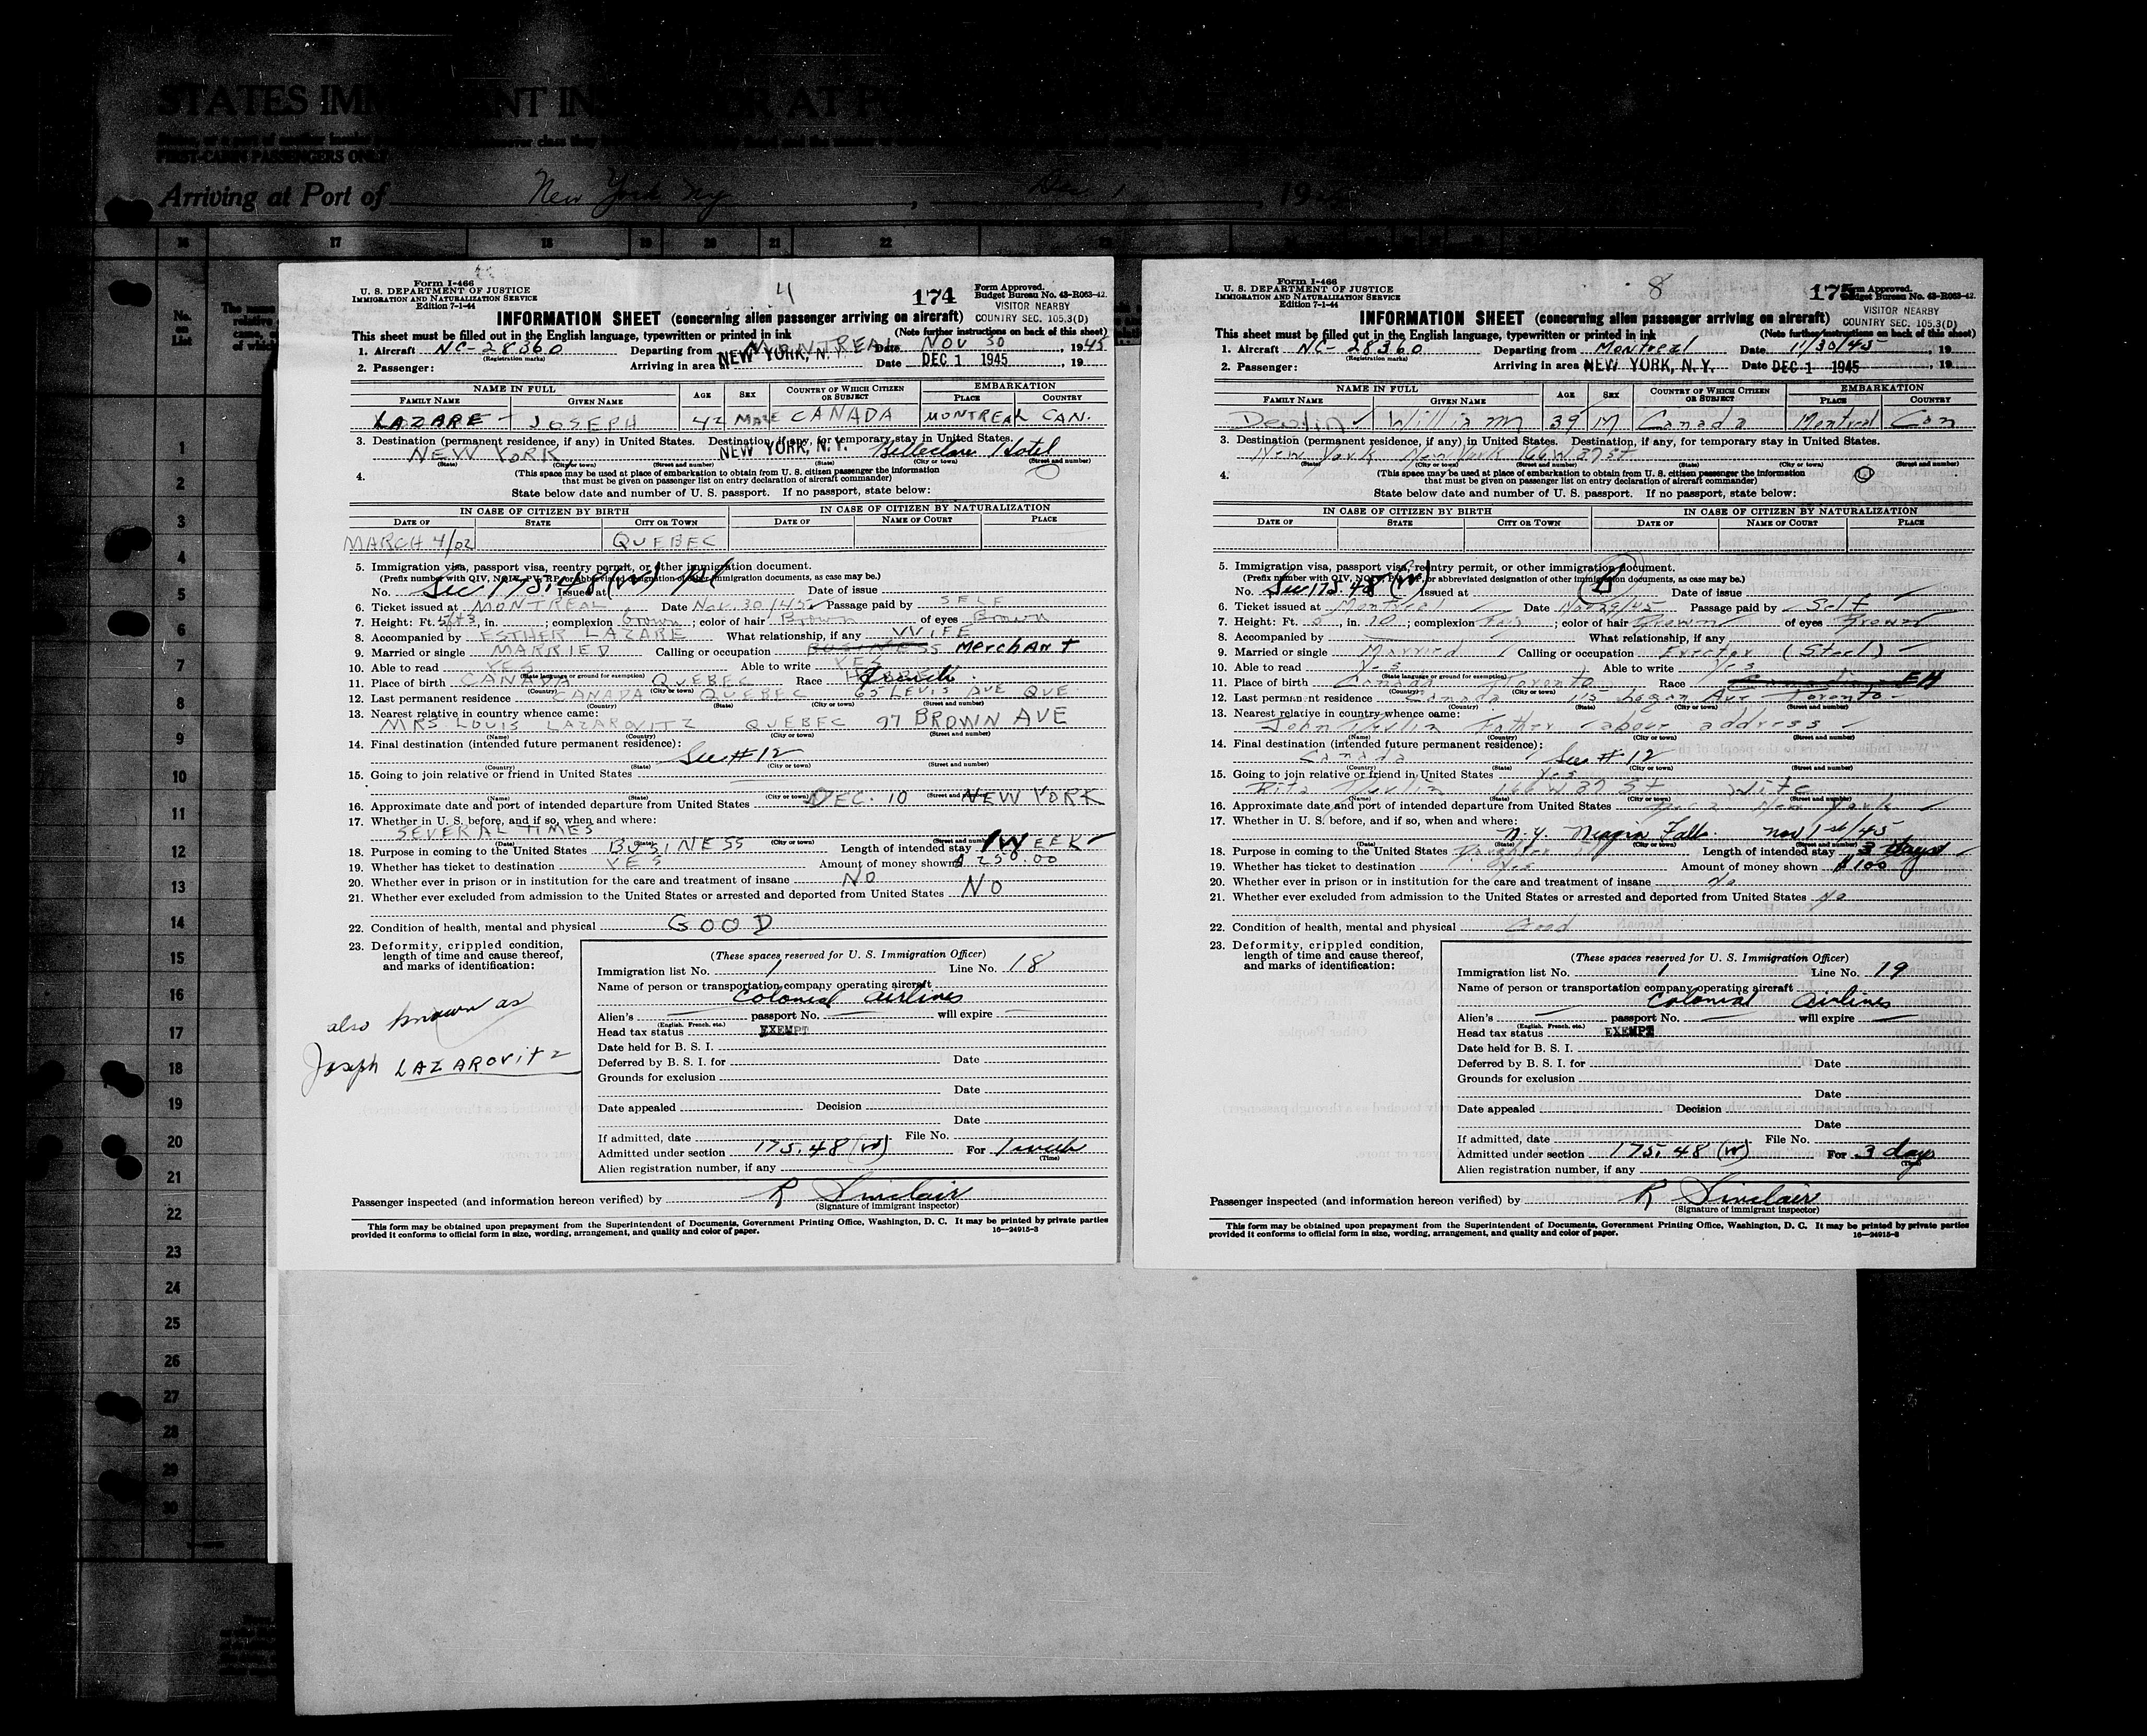 STATES IMM ANT IN R AT PO
FIRST-CABIN PASSENGERS ONLY
Arriving at Port of New York NY, Dec 1, 19
16 17 18 19 20 21 22 23
No. on List
1
2
3
4
5
6
7
8
9
10
11
12
13
14
15
16
17
18
19
20
21
22
23
24
25
26
27
28
29
30
Form I-466
U. S. DEPARTMENT OF JUSTICE
IMMIGRATION AND NATURALIZATION SERVICE
Edition 7-1-44
4
174
Form Approved.
Budget Bureau No. 43-R063-42.
VISITOR NEARBY
COUNTRY SEC. 105.3(D)
INFORMATION SHEET (concerning alien passenger arriving on aircraft)
This sheet must be filled out in the English language, typewritten or printed in ink (Note further instructions on back of this sheet)
1. Aircraft NC-28360 Departing from MONTREAL Date NOV 30, 1945
(Registration marks)
2. Passenger: Arriving in area NEW YORK, N. Y. Date DEC 1 1945, 19
NAME IN FULL AGE SEX COUNTRY OF WHICH CITIZEN OR SUBJECT EMBARKATION
FAMILY NAME GIVEN NAME PLACE COUNTRY
LAZARE JOSEPH 42 MALE CANADA MONTREAL CAN.
3. Destination (permanent residence, if any) in United States. Destination, if any, for temporary stay in United States.
NEW YORK, NEW YORK, N. Y. Belleclaire Hotel
(State) (City or town) (Street and number) (State) (City or town) (Street and number)
4. (This space may be used at place of embarkation to obtain from U. S. citizen passenger the information
that must be given on passenger list on entry declaration of aircraft commander)
State below date and number of U. S. passport. If no passport, state below:
IN CASE OF CITIZEN BY BIRTH IN CASE OF CITIZEN BY NATURALIZATION
DATE OF STATE CITY OR TOWN DATE OF NAME OF COURT PLACE
MARCH 4/02 QUEBEC
5. Immigration visa, passport visa, reentry permit, or other immigration document.
(Prefix number with QIV, NQIV, PV, RP, or abbreviated designation of other immigration documents, as case may be.)
No. Sec 175.48(W) Issued at Date of issue
6. Ticket issued at MONTREAL Date Nov. 30/45 Passage paid by SELF
7. Height: Ft. 5ft3, in. ; complexion brown ; color of hair Brown of eyes Brown
8. Accompanied by ESTHER LAZARE What relationship, if any WIFE
9. Married or single MARRIED Calling or occupation BUSINESS MerchAnt
10. Able to read YES Able to write YES
(State language or ground for exemption)
11. Place of birth CANADA QUEBEC Race
(Country) (City or town)
12. Last permanent residence CANADA QUEBEC 65 LEVIS AVE QUE.
(Country) (State) (City or town) (Street and number)
13. Nearest relative in country whence came:
MRS LOUIS LAZAROVITZ QUEBEC 97 BROWN AVE
(Name) (Country) (City or town) (Street and number)
14. Final destination (intended future permanent residence):
See #12
(Country) (State) (City or town) (Street and number)
15. Going to join relative or friend in United States
(Name) (State) (City or town) (Street and number)
16. Approximate date and port of intended departure from United States DEC. 10 NEW YORK
17. Whether in U. S. before, and if so, when and where:
SEVERAL TIMES
(Date) (State) (Street and number)
18. Purpose in coming to the United States BUSINESS Length of intended stay 1 WEEK
19. Whether has ticket to destination YES Amount of money shown $ 250.00
20. Whether ever in prison or in institution for the care and treatment of insane NO
21. Whether ever excluded from admission to the United States or arrested and deported from United States NO
22. Condition of health, mental and physical GOOD
23. Deformity, crippled condition,
length of time and cause thereof,
and marks of identification:
also known as
Joseph LAZAROVITZ
(These spaces reserved for U. S. Immigration Officer)
Immigration list No. 1 Line No. 18
Name of person or transportation company operating aircraft
Colonial Airlines
Alien's passport No. will expire
(English, French, etc.)
Head tax status EXEMPT
Date held for B. S. I.
Deferred by B. S. I. for Date
Grounds for exclusion
Date
Date appealed Decision
Date
If admitted, date File No.
Admitted under section 175.48(W) For 1 week
(Time)
Alien registration number, if any
Passenger inspected (and information hereon verified) by R Sinclair
(Signature of immigrant inspector)
This form may be obtained upon prepayment from the Superintendent of Documents, Government Printing Office, Washington, D. C. It may be printed by private parties
provided it conforms to official form in size, wording, arrangement, and quality and color of paper. 16—24915-3
Form I-466
U. S. DEPARTMENT OF JUSTICE
IMMIGRATION AND NATURALIZATION SERVICE
Edition 7-1-44
8
175
Form Approved.
Budget Bureau No. 43-R063-42.
VISITOR NEARBY
COUNTRY SEC. 105.3(D)
INFORMATION SHEET (concerning alien passenger arriving on aircraft)
This sheet must be filled out in the English language, typewritten or printed in ink (Note further instructions on back of this sheet)
1. Aircraft NC-28360 Departing from Montreal Date 11/30/45, 19
(Registration marks)
2. Passenger: Arriving in area NEW YORK, N. Y. Date DEC 1 1945, 19
NAME IN FULL AGE SEX COUNTRY OF WHICH CITIZEN OR SUBJECT EMBARKATION
FAMILY NAME GIVEN NAME PLACE COUNTRY
Devlin William 39 M Canada Montreal Can
3. Destination (permanent residence, if any) in United States. Destination, if any, for temporary stay in United States.
New York New York 166 W 87 St
(State) (City or town) (Street and number) (State) (City or town) (Street and number)
4. (This space may be used at place of embarkation to obtain from U. S. citizen passenger the information
that must be given on passenger list on entry declaration of aircraft commander)
State below date and number of U. S. passport. If no passport, state below:
IN CASE OF CITIZEN BY BIRTH IN CASE OF CITIZEN BY NATURALIZATION
DATE OF STATE CITY OR TOWN DATE OF NAME OF COURT PLACE
5. Immigration visa, passport visa, reentry permit, or other immigration document.
(Prefix number with QIV, NQIV, PV, RP, or abbreviated designation of other immigration documents, as case may be.)
No. Sec 175.48 (W) Issued at Date of issue
6. Ticket issued at Montreal Date Nov 29/45 Passage paid by Self
7. Height: Ft. 5, in. 10 ; complexion Fair ; color of hair Brown of eyes Brown
8. Accompanied by What relationship, if any
9. Married or single Married Calling or occupation Erector (Steel)
10. Able to read Yes Able to write Yes
(State language or ground for exemption)
11. Place of birth Canada Toronto Race Canadian EH
(Country) (City or town)
12. Last permanent residence Canada 115 Logan Ave Toronto
(Country) (State) (City or town) (Street and number)
13. Nearest relative in country whence came:
John Devlin Father above address
(Name) (Country) (City or town) (Street and number)
14. Final destination (intended future permanent residence):
Canada See #12
(Country) (State) (City or town) (Street and number)
15. Going to join relative or friend in United States Yes
Rita Devlin 166 W 87 St Wife
(Name) (State) (City or town) (Street and number)
16. Approximate date and port of intended departure from United States Dec 2 New York
17. Whether in U. S. before, and if so, when and where:
N.Y. Niagra Falls. Nov 1st/45
(Date) (State) (City or town) (Street and number)
18. Purpose in coming to the United States Length of intended stay 3 days
19. Whether has ticket to destination Yes Amount of money shown $100
20. Whether ever in prison or in institution for the care and treatment of insane No
21. Whether ever excluded from admission to the United States or arrested and deported from United States No
22. Condition of health, mental and physical Good
23. Deformity, crippled condition,
length of time and cause thereof,
and marks of identification:
(These spaces reserved for U. S. Immigration Officer)
Immigration list No. 1 Line No. 19
Name of person or transportation company operating aircraft
Colonial Airlines
Alien's passport No. will expire
(English, French, etc.)
Head tax status EXEMPT
Date held for B. S. I.
Deferred by B. S. I. for Date
Grounds for exclusion
Date
Date appealed Decision
Date
If admitted, date File No.
Admitted under section 175.48 (W) For 3 days
(Time)
Alien registration number, if any
Passenger inspected (and information hereon verified) by R Sinclair
(Signature of immigrant inspector)
This form may be obtained upon prepayment from the Superintendent of Documents, Government Printing Office, Washington, D. C. It may be printed by private parties
provided it conforms to official form in size, wording, arrangement, and quality and color of paper. 16—24915-3